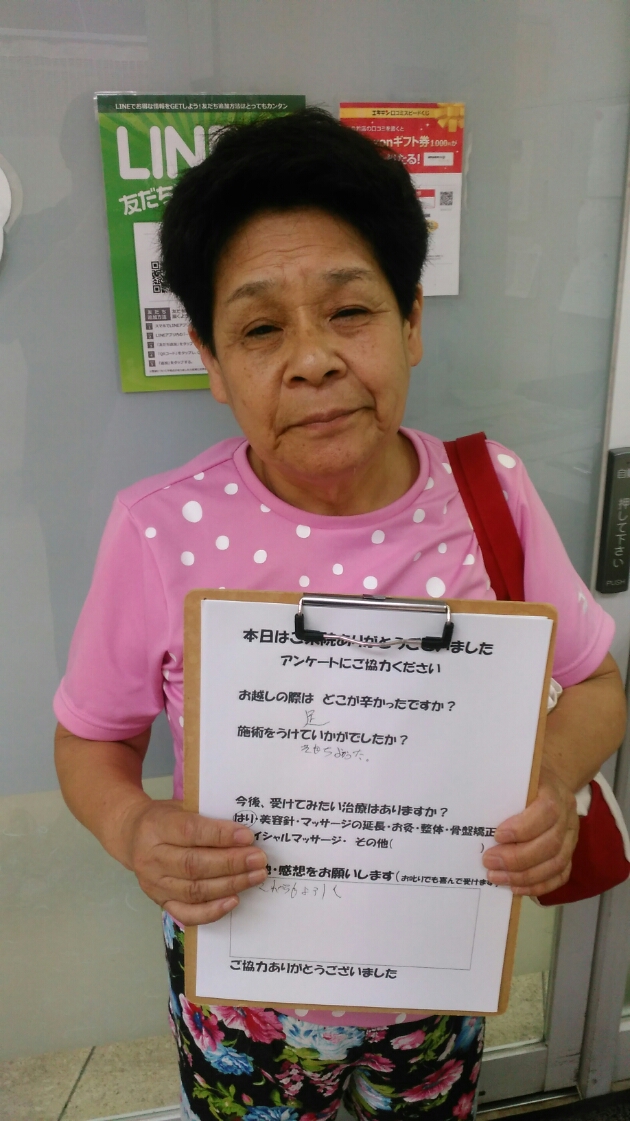 LINEでお得な情報をGETしよう!友だち追加方法はとってもカンタン
LIN
友だち
エキテン口コミスピードくじ
onギフト券1000円が
たる!
自動
押して下さい
PUSH
本日はご来院ありがとうございました
アンケートにご協力ください
お越しの際は どこが辛かったですか?
足
施術をうけていかがでしたか?
きもちよかった。
今後、受けてみたい治療はありますか?
はり・美容針・マッサージの延長・お灸・整体・骨盤矯正
イシャルマッサージ・ その他( )
他・感想をお願いします(お叱りでも喜んで受けます
ご協力ありがとうございました